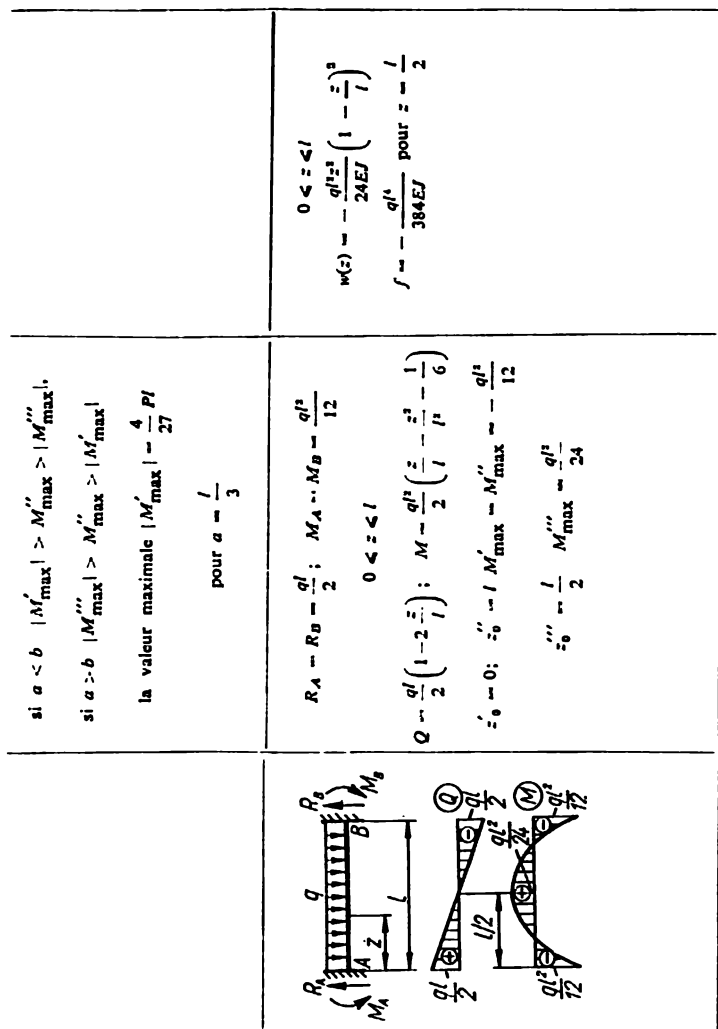 si a < b |M′max| > M″max > |M‴max|,
si a > b |M‴max| > M″max > |M′max|
la valeur maximale |M′max| = 4/27 Pl
pour a = l/3
q
R_A
R_B
M_A
M_B
A
B
z
l
ql/2
+
−
Q
ql/2
l/2
ql²/24
M
ql²/12
−
+
−
ql²/12
R_A = R_B = ql/2; M_A = M_B = ql²/12
0 < z < l
Q = ql/2 (1 − 2 z/l); M = ql²/2 (z/l − z²/l² − 1/6)
z′₀ = 0; z″₀ = l M′max = M″max = − ql²/12
z‴₀ = l/2 M‴max = ql²/24
0 < z < l
w(z) = − ql²z²/24EJ (1 − z/l)²
f = − ql⁴/384EJ pour z = l/2